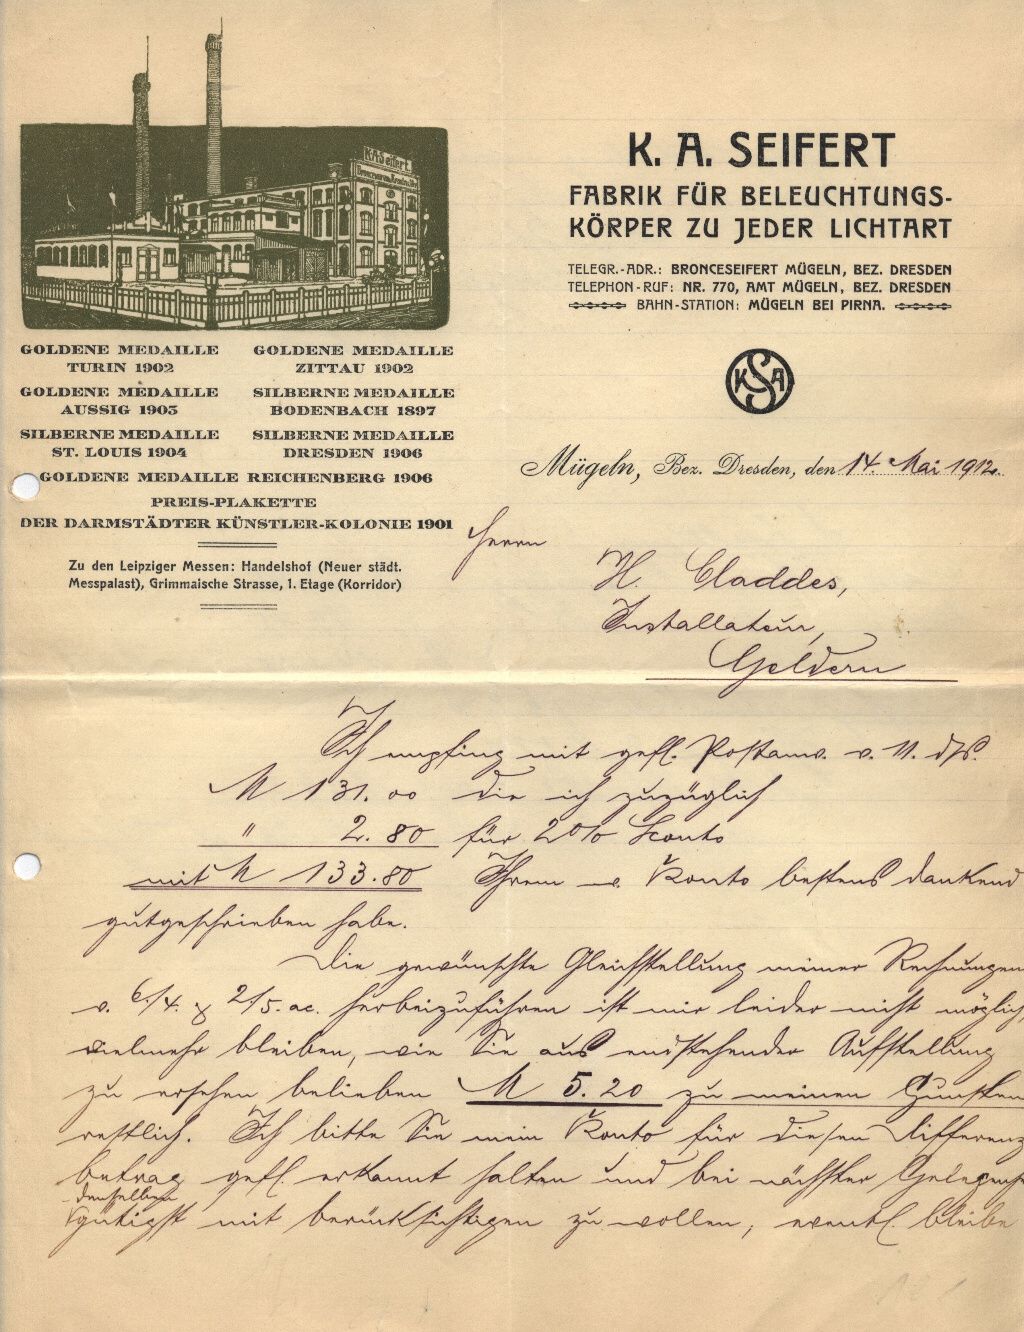 K. A. Seifert
Bronzewaren
K. A. SEIFERT
FABRIK FÜR BELEUCHTUNGS-
KÖRPER ZU JEDER LICHTART
TELEGR.-ADR.: BRONCESEIFERT MÜGELN, BEZ. DRESDEN
TELEPHON-RUF: NR. 770, AMT MÜGELN, BEZ. DRESDEN
BAHN-STATION: MÜGELN BEI PIRNA.
KSA
GOLDENE MEDAILLE
TURIN 1902
GOLDENE MEDAILLE
ZITTAU 1902
GOLDENE MEDAILLE
AUSSIG 1903
SILBERNE MEDAILLE
BODENBACH 1897
SILBERNE MEDAILLE
ST. LOUIS 1904
SILBERNE MEDAILLE
DRESDEN 1906
GOLDENE MEDAILLE REICHENBERG 1906
PREIS-PLAKETTE
DER DARMSTÄDTER KÜNSTLER-KOLONIE 1901
Zu den Leipziger Messen: Handelshof (Neuer städt.
Messpalast), Grimmaische Strasse, 1. Etage (Korridor)
Mügeln, Bez. Dresden, den 14. Mai 1912.
Herrn
H. Claddes,
Installateur,
Geldern
Ich empfing mit gefl. Postanw. v. 11. ds.
M 131.00 die ich zuzüglich
" 2.80 für 2% Sconto
mit M 133.80 Ihrem w. Konto bestens dankend
gutgeschrieben habe.
Die gewünschte Gleichstellung meiner Rechnungen
v. 6./4. & 2/5. ac. herbeizuführen ist mir leider nicht möglich
vielmehr bleiben, wie Sie aus endstehender Aufstellung
zu ersehen belieben M 5.20 zu meinen Gunsten
restlich. Ich bitte Sie mein Konto für diesen Differenz
betrag gefl. erkannt halten und bei nächster
denselben
gütigst mit berücksichtigen zu wollen, eventl. bleibe